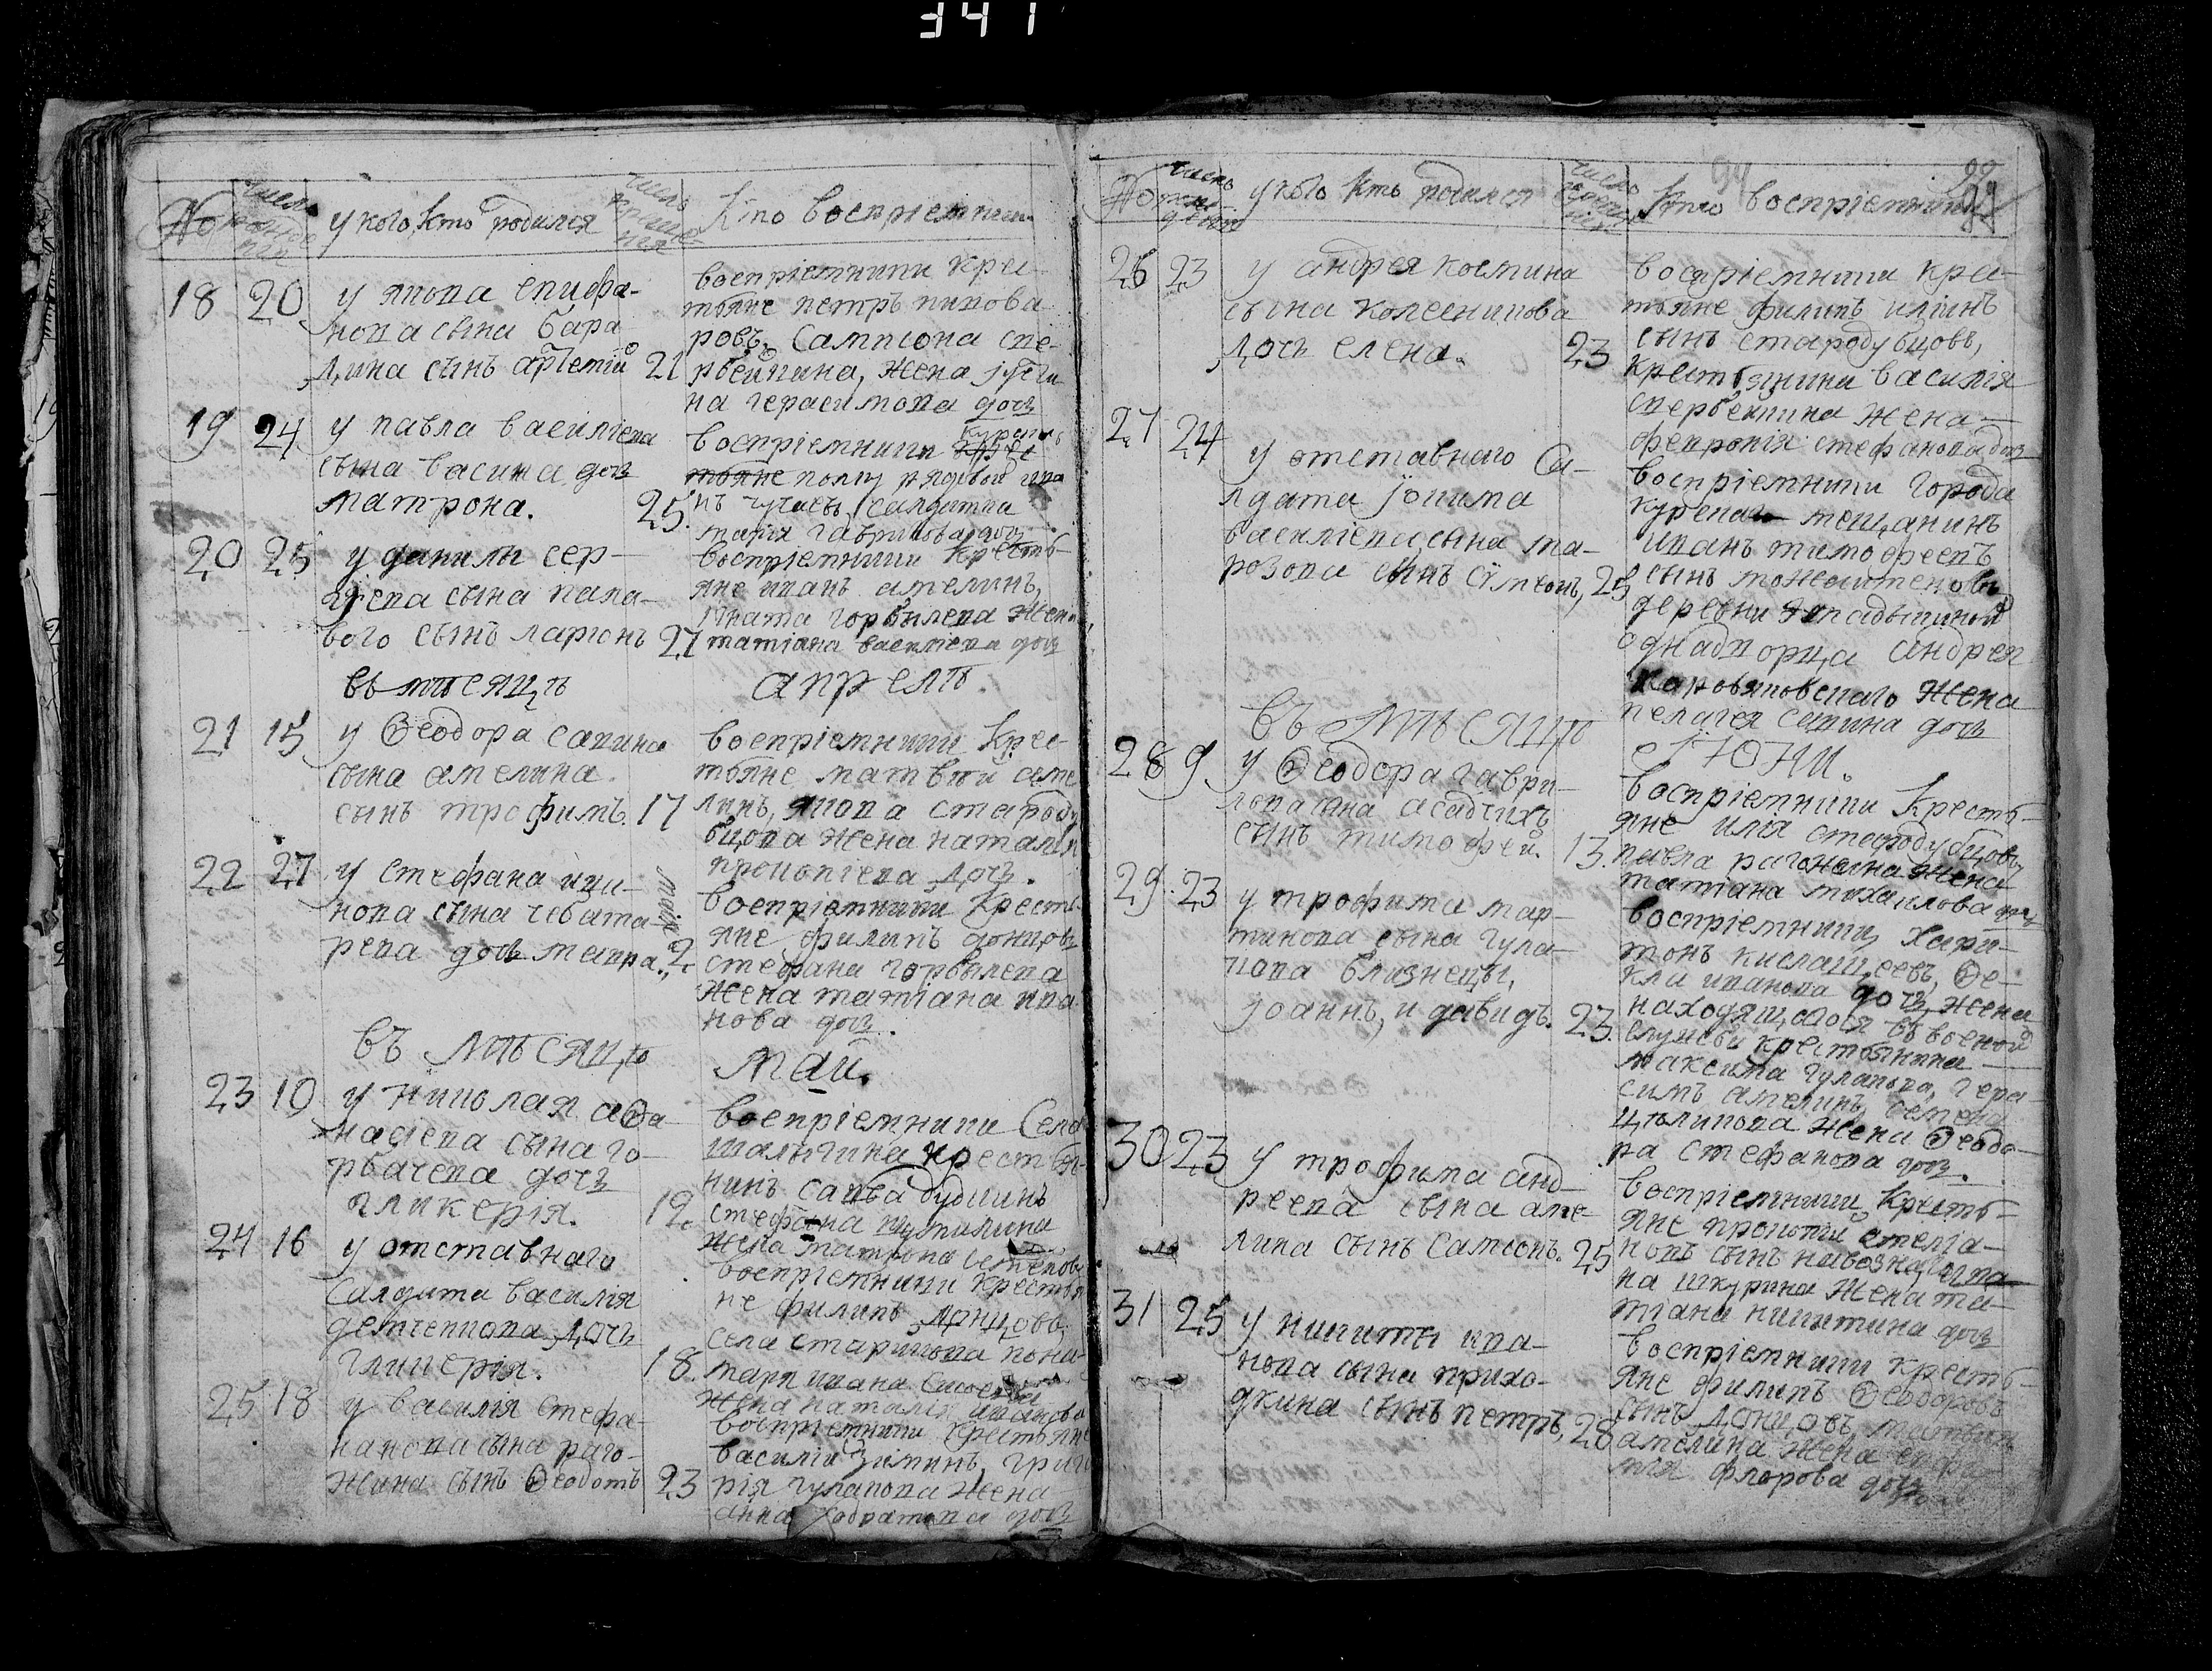 341
No
число рожде
нія
у кого, кто родился
число
креще
нія
Кто воспріемники
18 20 у якова епифа-
нова сына бара
дина сынъ арѳетій 21
воспріемники крес
тьяне петръ пивова
ровъ. Сампсона спе-
рвейкина, жена ѹсти
на герасимова дочь
19 24 у павла василіева
сына васина дочь
матрона. 25.
воспріемники
полку рядовой ива
нъ салдатка
марія гаврилова дочь
20 25 у данилы сер-
гѣева сына пана-
вого сынъ ларіонъ 27
воспріемники кресть-
яне иванъ амелинъ,
игната горбылева жена
татіана василіева дочь
въ мѣсяцѣ апрелѣ.
21 15 у Ѳеодора савина
сына амелина
сынъ трофимъ. 17
воспріемники крес-
тьяне матвѣй аме
линъ, якова староду
бцова жена наталія
прокопіева дочь.
22 27 у стефана ники-
нова сына чеботарева дочь мавра. 2
маія
воспріемники кресть-
яне филипъ донцовъ
стефана горбылева
жена татіана ива
нова дочь.
въ мѣсяцѣ маи.
23 10 у николая аѳа
насіева сына го-
рбачева дочь
гликерія. 12.
воспріемники села
шалыгина крестья-
нинъ савва
стефана
жена матрона
24 16 у отставнаго
салдата василія
демченкова дочь
гликерія. 18.
воспріемники крестья
не филипъ донцовъ.
села старикова поно-
маря ивана
жена наталія иванова
25 18 у василія стефа-
нанова сына раго-
жина сынъ Ѳеодотъ 23
воспріемники крестьяне
василій зиминъ, григо
рія гулакова жена
анна кодратова дочь
94
99
No
число
рож
денія
у кого кто родился
число
креще
нія
Кто воспріемники
26 23 у андрея космина
сына колесникова
дочь елена. 23
воспріемники кре-
тьяне филипъ иліинъ
сынъ стародубцовъ,
крестьянина василія
сперьвенкина жена
февронія стефанова дочь
27 24 у отставнаго са-
лдата іокима
василіева сына ма-
розова сынъ сѵмеонъ, 25
воспріемники города
курска мещанинъ
иванъ тимофеевъ
сынъ
деревни
однадворца андрея
жена
пелагея савина дочь
въ мѣсяцѣ ІЮНИ.
28 9. у Ѳеодора гаври-
лова сына асадчихъ
сынъ тимофей. 13.
воспріемники кресть-
яне илія стародубцовъ
павла рагожина жена
татіана михаилова дочь
29. 23 у трофима мар-
тинова сына гула-
кова близнецы,
іоаннъ, и давидъ. 23.
воспріемники хари-
тонъ кислащеевъ, Ѳе-
кла иванова дочь, жена
находящагося въ военой
службы крестьянина
максима гулакова, гера-
симъ амелинъ семена
жена Ѳеодо-
ра стефанова дочь.
30 23 у трофима анд
реева сына аме-
лина сынъ самсонъ. 25
воспріемники кресть-
яне прокопій
новъ сынъ ива
на шкурина жена та-
тіана никитина дочь
31 25 у никиты ива-
нова сына прихо-
дкина сынъ петръ, 28
воспріемники кресть-
яне филипъ Ѳеодоровъ
сынъ донцовъ, матвея
амелина жена
флорова дочь